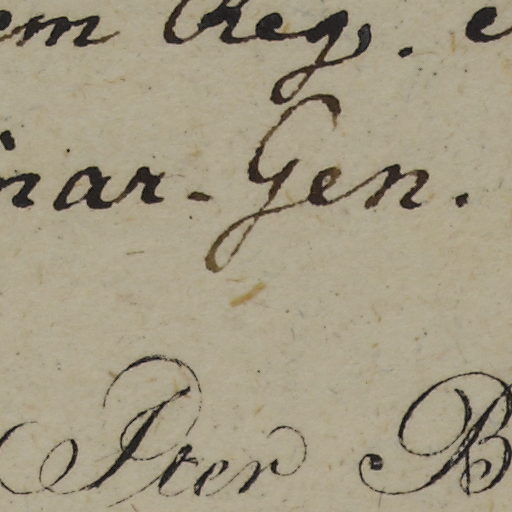 em Reg. e
inar-Gen.
Iter B